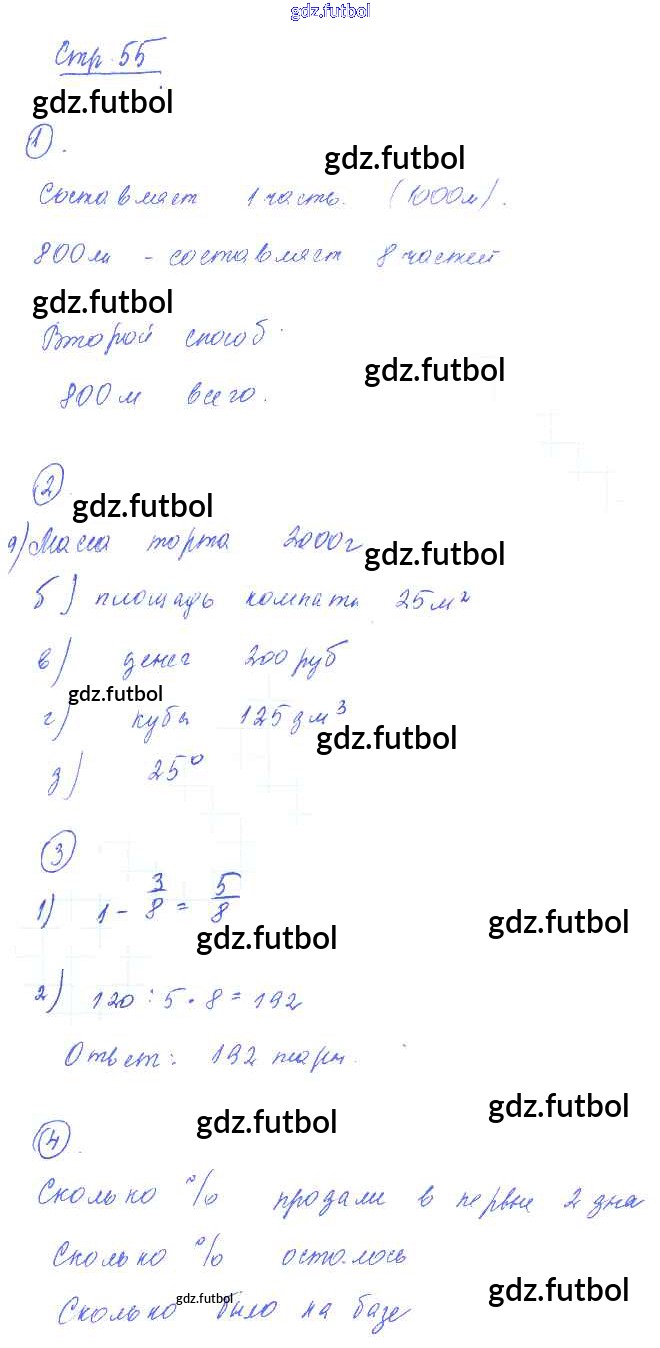 gdz.futbol
Стр 55
gdz.futbol
1.
gdz.futbol
Составляет 1 часть. (1000м).
800м - составляет 8 частей
gdz.futbol
Второй способ.
gdz.futbol
800м всего.
2
gdz.futbol
а) Масса торта 2000г
gdz.futbol
б) площадь комнаты 25м²
в) денег 200 руб
gdz.futbol
г) кубы 125дм³
gdz.futbol
д) 25°
3
1) 1 - 3/8 = 5/8
gdz.futbol
gdz.futbol
2) 120 : 5 · 8 = 192
Ответ: 192 пары.
gdz.futbol
gdz.futbol
4.
Сколько % продали в первые 2 дня
Сколько % осталось
gdz.futbol
gdz.futbol
Сколько было на базе